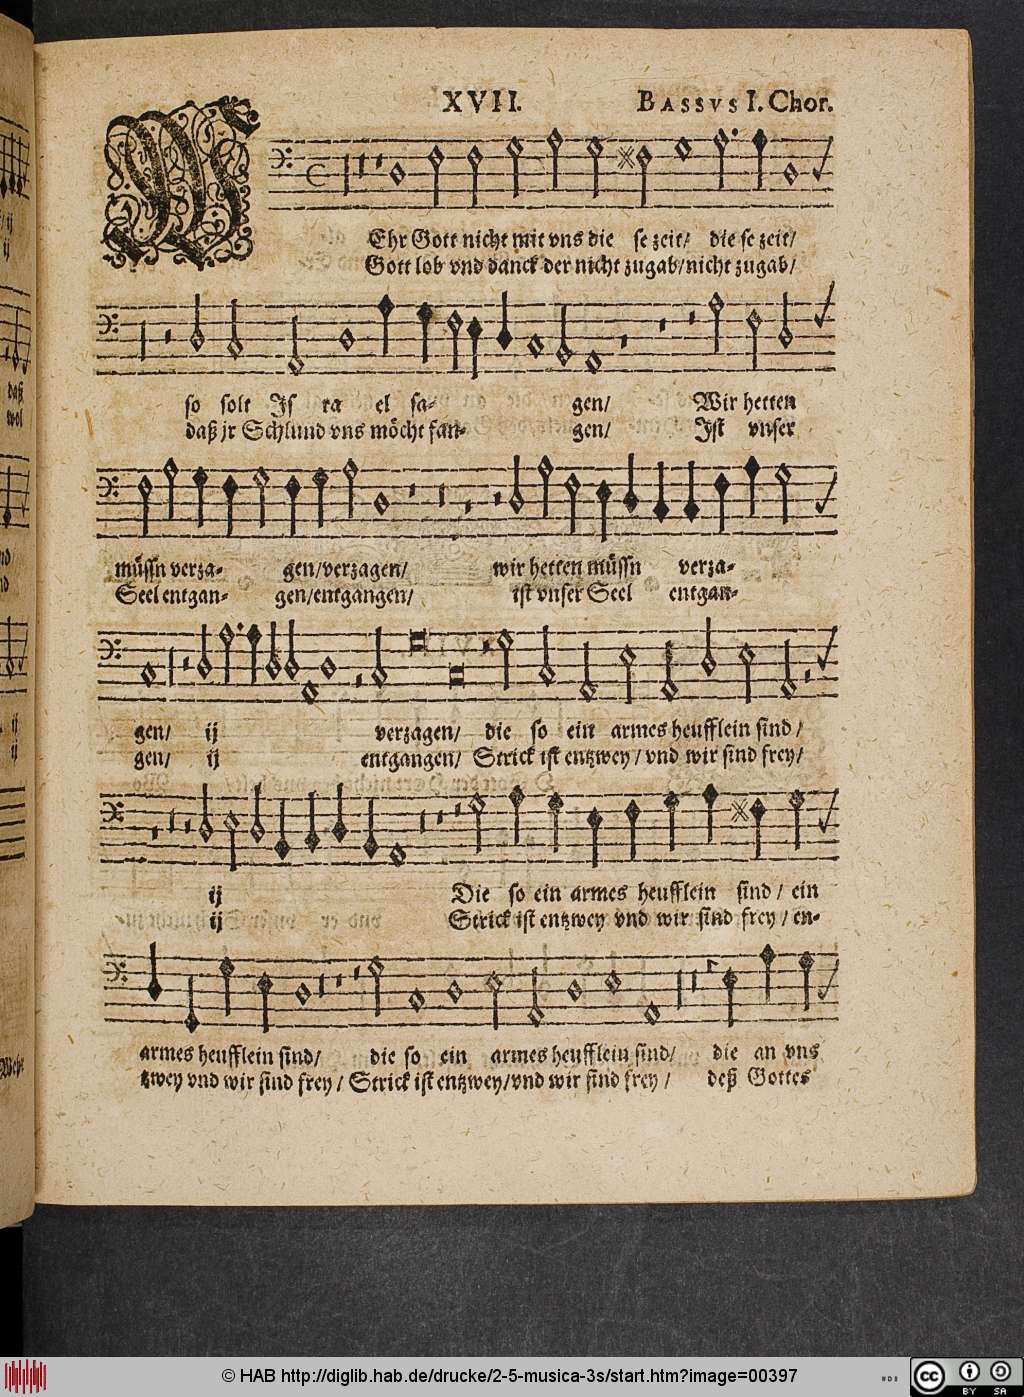 XVII. BASSVS I. Chor.
WEhr Gott nicht mit vns die se zeit/ die se zeit/
Gott lob vnd danck der nicht zugab/nicht zugab/
so solt Is ra el sa- gen/ Wir hetten
daß jr Schlund vns möcht fan- gen/ Ist vnser
müssn verza- gen/verzagen/ wir hetten müssn verza-
Seel entgan- gen/entgangen/ ist vnser Seel entgan-
gen/ ij verzagen/ die so ein armes heufflein sind/
gen/ ij entgangen/ Strick ist entzwey/vnd wir sind frey/
ij Die so ein armes heufflein sind/ ein
ij Strick ist entzwey vnd wir sind frey/en-
armes heufflein sind/ die so ein armes heufflein sind/ die an vns
tzwey vnd wir sind frey/Strick ist entzwey/vnd wir sind frey/ deß Gottes
© HAB http://diglib.hab.de/drucke/2-5-musica-3s/start.htm?image=00397
cc BY SA